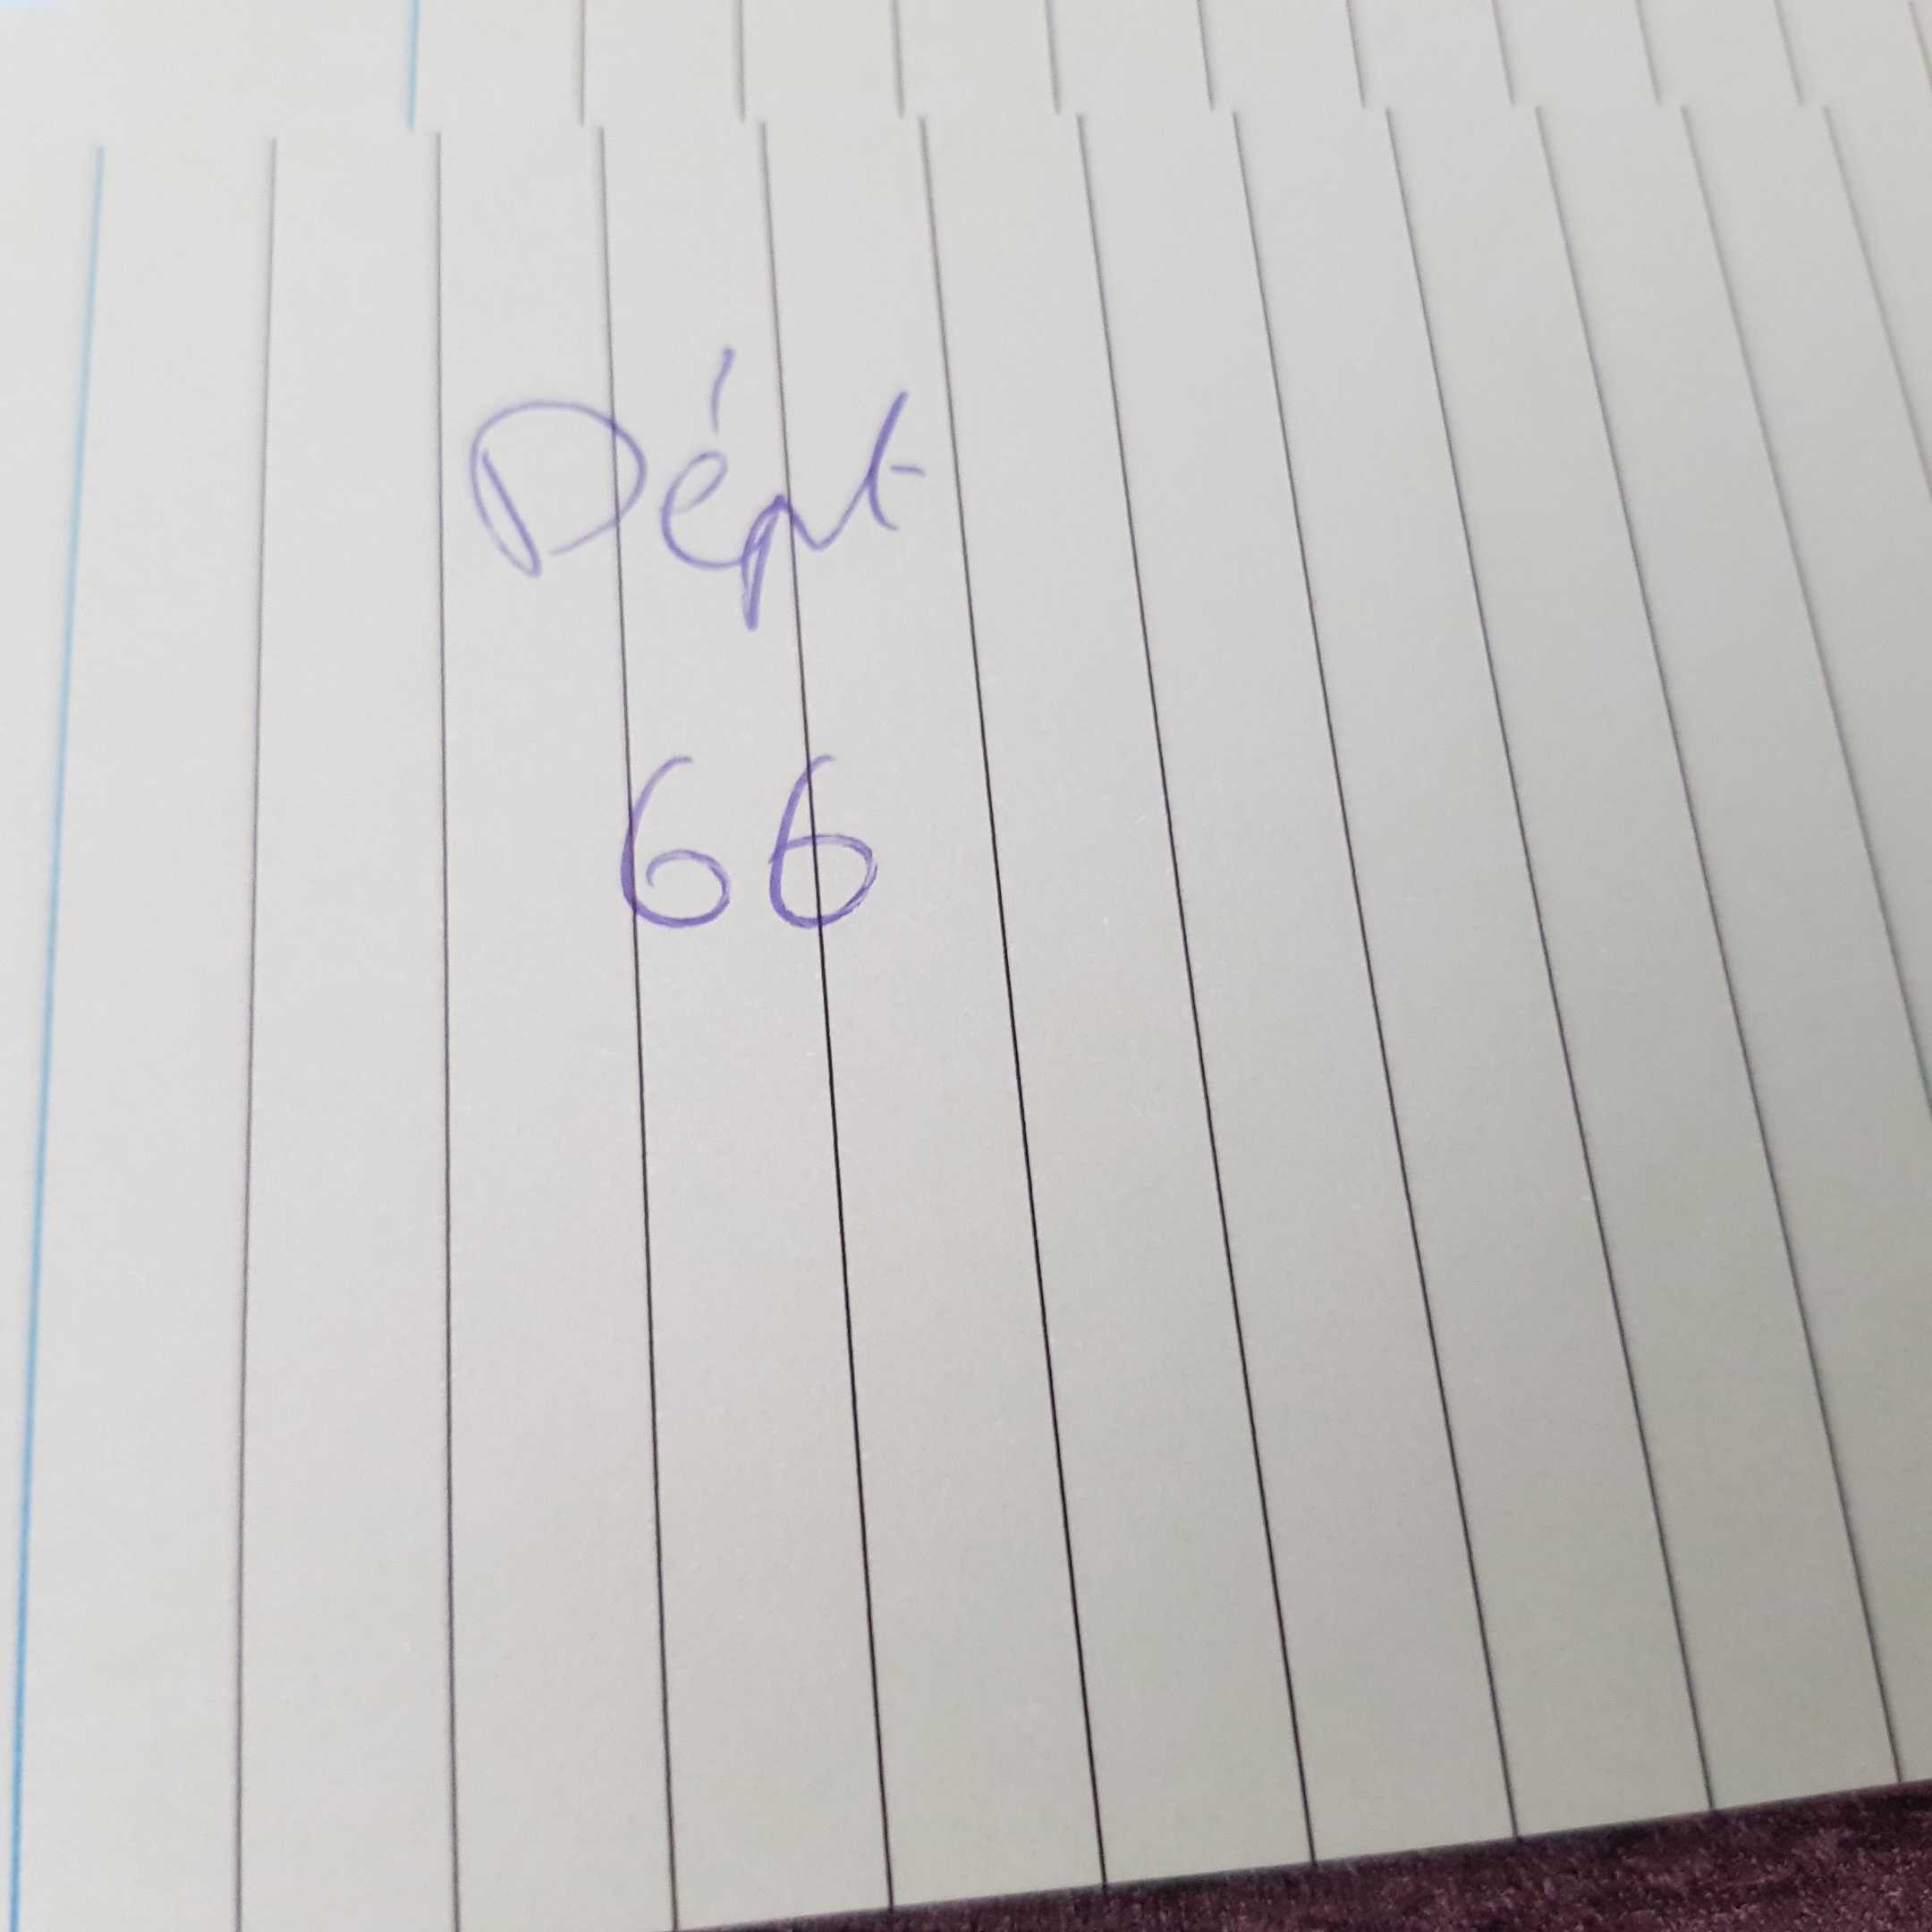 Dépt
66